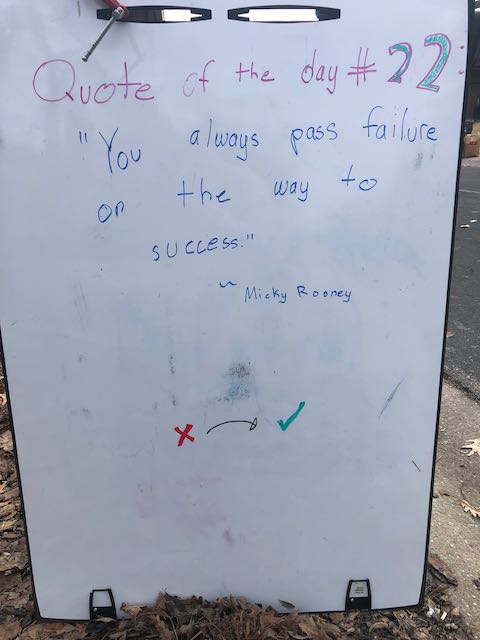 Quote of the day # 22:
"You always pass failure
on the way to
success."
~ Micky Rooney